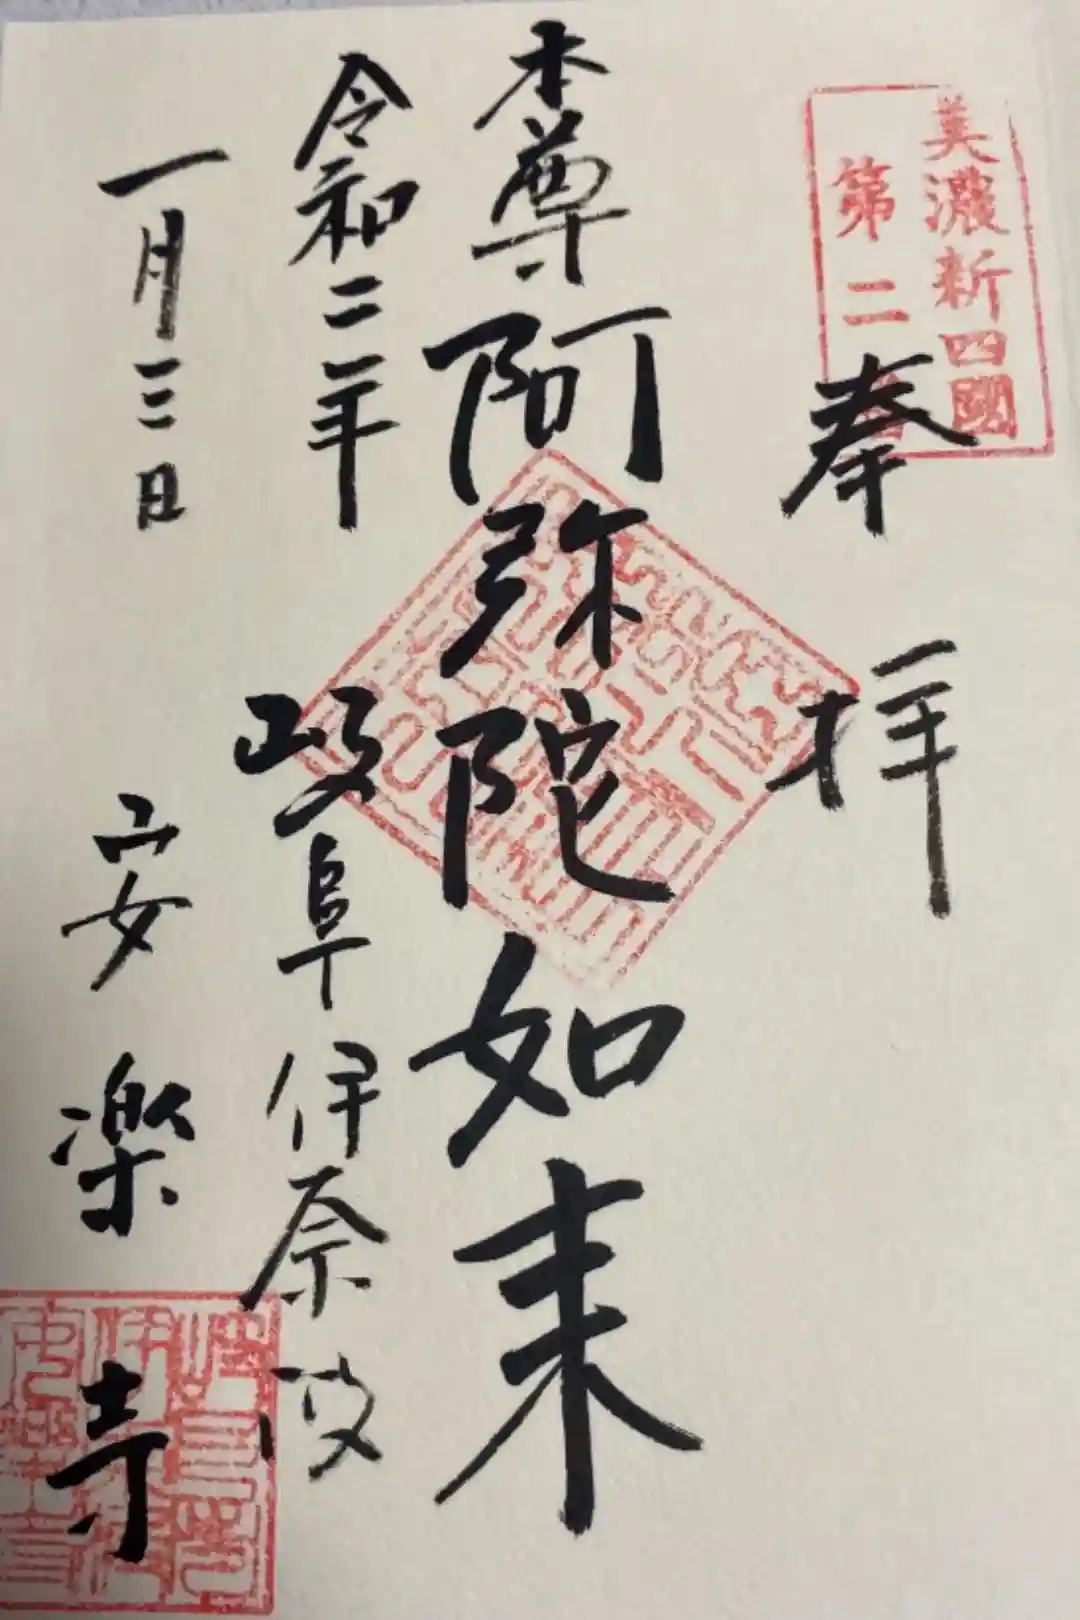 美濃新四國
第二
奉拝
本尊 阿弥陀如来
令和二年
一月三日
岐阜伊奈波
安楽寺